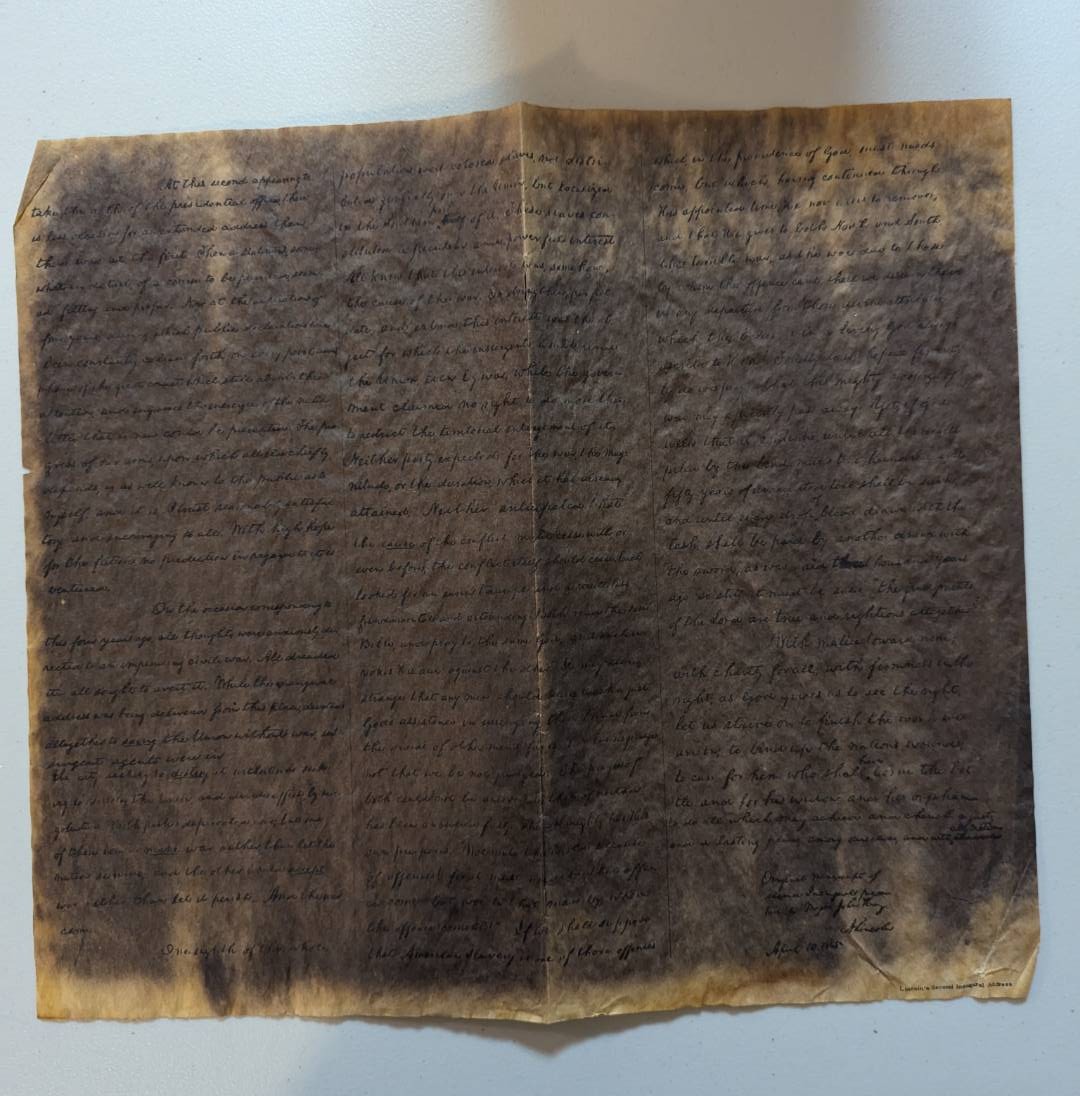 At this second appearing to
take the oath of the presidential office, there
is less occasion for an extended address than
there was at the first. Then a statement, some
what in detail, of a course to be pursued, seem
ed fitting and proper. Now, at the expiration of
four years, during which public declarations have
been constantly called forth on every point and
phase of the great contest which still absorbs the
attention, and engrosses the energies of the nation
little that is new could be presented. The pro
gress of our arms, upon which all else chiefly
depends, is as well known to the public as to
myself; and it is, I trust, reasonably satisfac
tory and encouraging to all. With high hope
for the future, no prediction in regard to it is
ventured.
On the occasion corresponding to
this four years ago, all thoughts were anxiously di
rected to an impending civil war. All dreaded
it all sought to avert it. While the inaugural
address was being delivered from this place, devoted
altogether to saving the Union without war, in
surgent agents were in
the city seeking to destroy it without war seek
ing to dissolve the Union, and divide effects, by ne
gotiation. Both parties deprecated war; but one
of them would make war rather than let the
nation survive; and the other would accept
war rather than let it perish. And the war
came.
One eighth of the whole
population were colored slaves, not distri
buted generally over the Union, but localized
in the Southern half of it. These slaves con
stituted a peculiar and powerful interest
All know that this interest was, somehow,
the cause of the war. To strengthen, perpet
uate, and extend this interest was the ob
ject for which the insurgents would rend
the Union, even by war; while the govern
ment claimed no right to do more than
to restrict the territorial enlargement of it.
Neither party expected for the war, the mag
nitude, or the duration, which it has already
attained. Neither anticipated that
the cause of the conflict might cease with, or
even before, the conflict itself should cease. Each
looked for an easier triumph, and a result less
fundamental and astounding. Both read the same
Bible, and pray to the same God; and each in
vokes His aid against the other. It may seem
strange that any men should dare to ask a just
God's assistance in wringing their bread from
the sweat of other men's faces; but let us judge
not that we be not judged. The prayers of
both could not be answered; that of neither
has been answered fully. The Almighty has his
own purposes. "Woe unto the world because
of offences! for it must needs be that offen
ces come; but woe to that man by whom
the offence cometh!" If we shall suppose
that American Slavery is one of those offences
which, in the providence of God, must needs
come, but which, having continued through
His appointed time, He now wills to remove,
and that He gives to both North and South
this terrible war, as the woe due to those
by whom the offence came, shall we discern there
in any departure from those divine attributes
which the believers in a Living God always
ascribe to Him? Fondly do we hope, fervently
do we pray, that this mighty scourge of
war may speedily pass away. Yet, if God
wills that it continue, until all the wealth
piled by the bond-man's two hundred and
fifty years of unrequited toil shall be sunk
and until every drop of blood drawn with the
lash, shall be paid by another drawn with
the sword, as was said three thousand years
ago so still it must be said "the judgments
of the Lord, are true and righteous altogether"
With malice toward none;
with charity for all; with firmness in the
right, as God gives us to see the right,
let us strive on to finish the work we
are in; to bind up the nation's wounds;
to care for him who shall have borne the bat
tle, and for his widow, and his orphan
to do all which may achieve and cherish a just,
and a lasting peace, among ourselves, and with all nations
Original manuscript of
second Inaugural presen
ted to Major John Hay
A. Lincoln
April 10, 1865
Lincoln's Second Inaugural Address